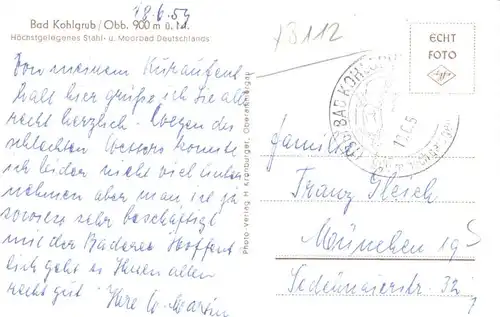 18.6.59
Bad Kohlgrub / Obb. 900 m ü. M.
Höchstgelegenes Stahl- u. Moorbad Deutschlands
Von meinem Kuraufent
halt hier grüße ich Sie alle
recht herzlich. Wegen des
schlechten Wetters konnte
ich leider nicht viel unter
nehmen aber man ist ja
sowieso sehr beschäftigt
mit der Baderei. Hoffent
lich geht es Ihnen allen
recht gut. Ihre
Photo Verlag Kronburger, Oberammergau
B112
ECHT
FOTO
Agfa
BAD KOHLGRUB
Familie
Franz
München 19
32